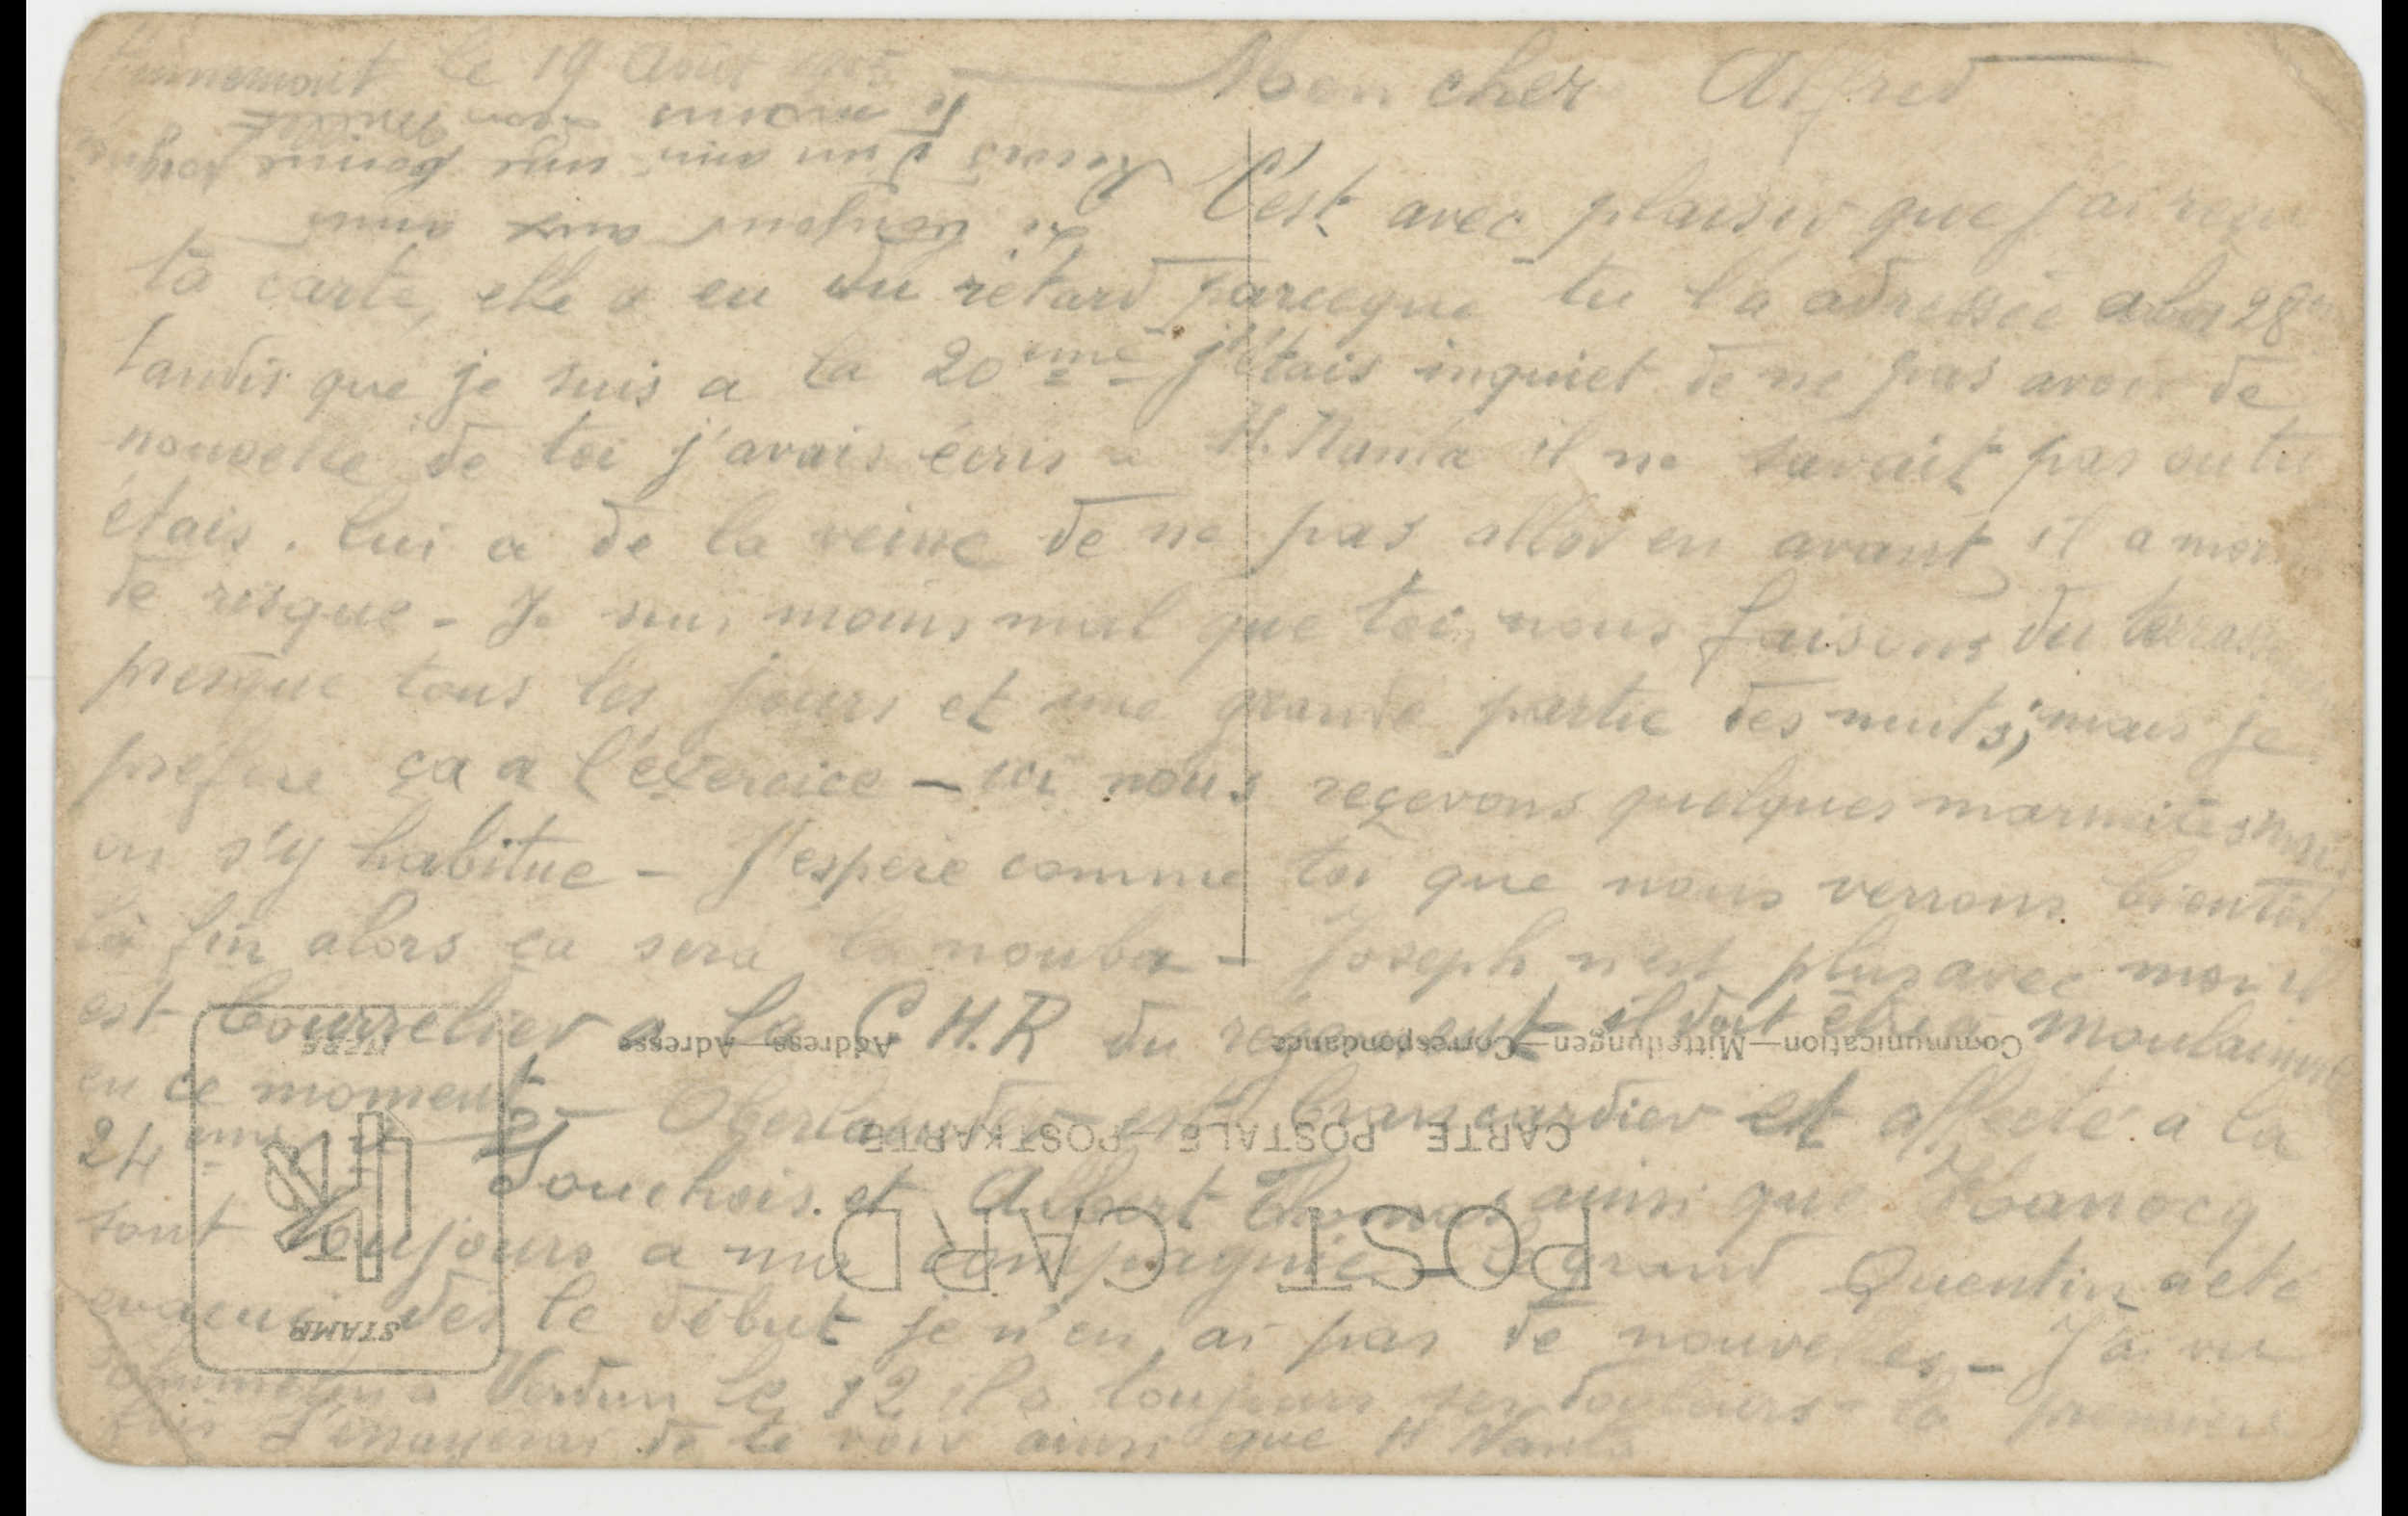 le 19 Août 1915
Mon cher Alfred
C'est avec plaisir que j'ai reçu
ta carte, elle a eu du retard parceque tu l'a adressée a la 28
tandis que je suis a la 20eme j'étais inquiet de ne pas avoir de
nouvelle de toi j'avais écris a H. Nanta il ne savait pas ou tu
étais. lui a de la veine de ne pas aller en avant il a moins
de risque - Je suis moins mal que toi, nous faisons du
presque tous les jours et une grande partie des nuits; mais je
préfère ça a l'éxercice - ici nous reçevons quelques marmites mais
on s'y habitue - J'espère comme toi que nous verrons bientôt
la fin alors ça sera la nouba - Joseph n'est plus avec moi il
est bourrelier a la C.H.R du régiment il doit être a
en ce moment - Oberlander est brancardier et affecté a la
24eme - Souchois et Albert Thomas ainsi que Hanocq
sont toujours a ma compagnie - le grand Quentin a eté
evacué des le début je n'en ai pas de nouvelles - J'ai vu
a Verdun le 12 il a toujours ses douleurs la première
fois J'essayerai de te voir ainsi que H Nanta
aux amis
Recois d'un ami une bonne
STAMP
HERE
POST CARD
CARTE POSTALE—POSTKARTE
Communication—Mitteilungen—Correspondance
Address—Adresse